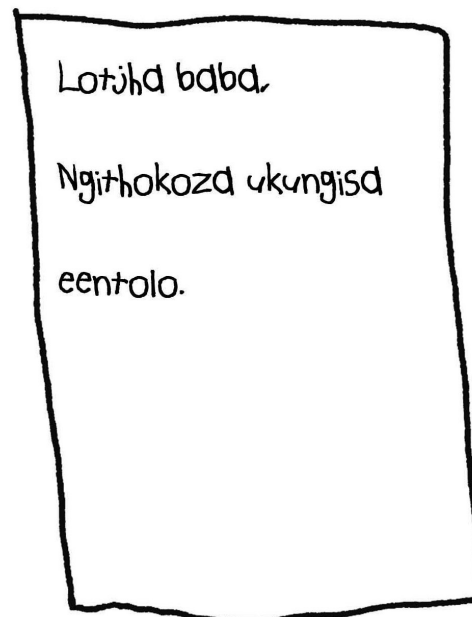 Lotjha baba,
Ngithokoza ukungisa
eentolo.